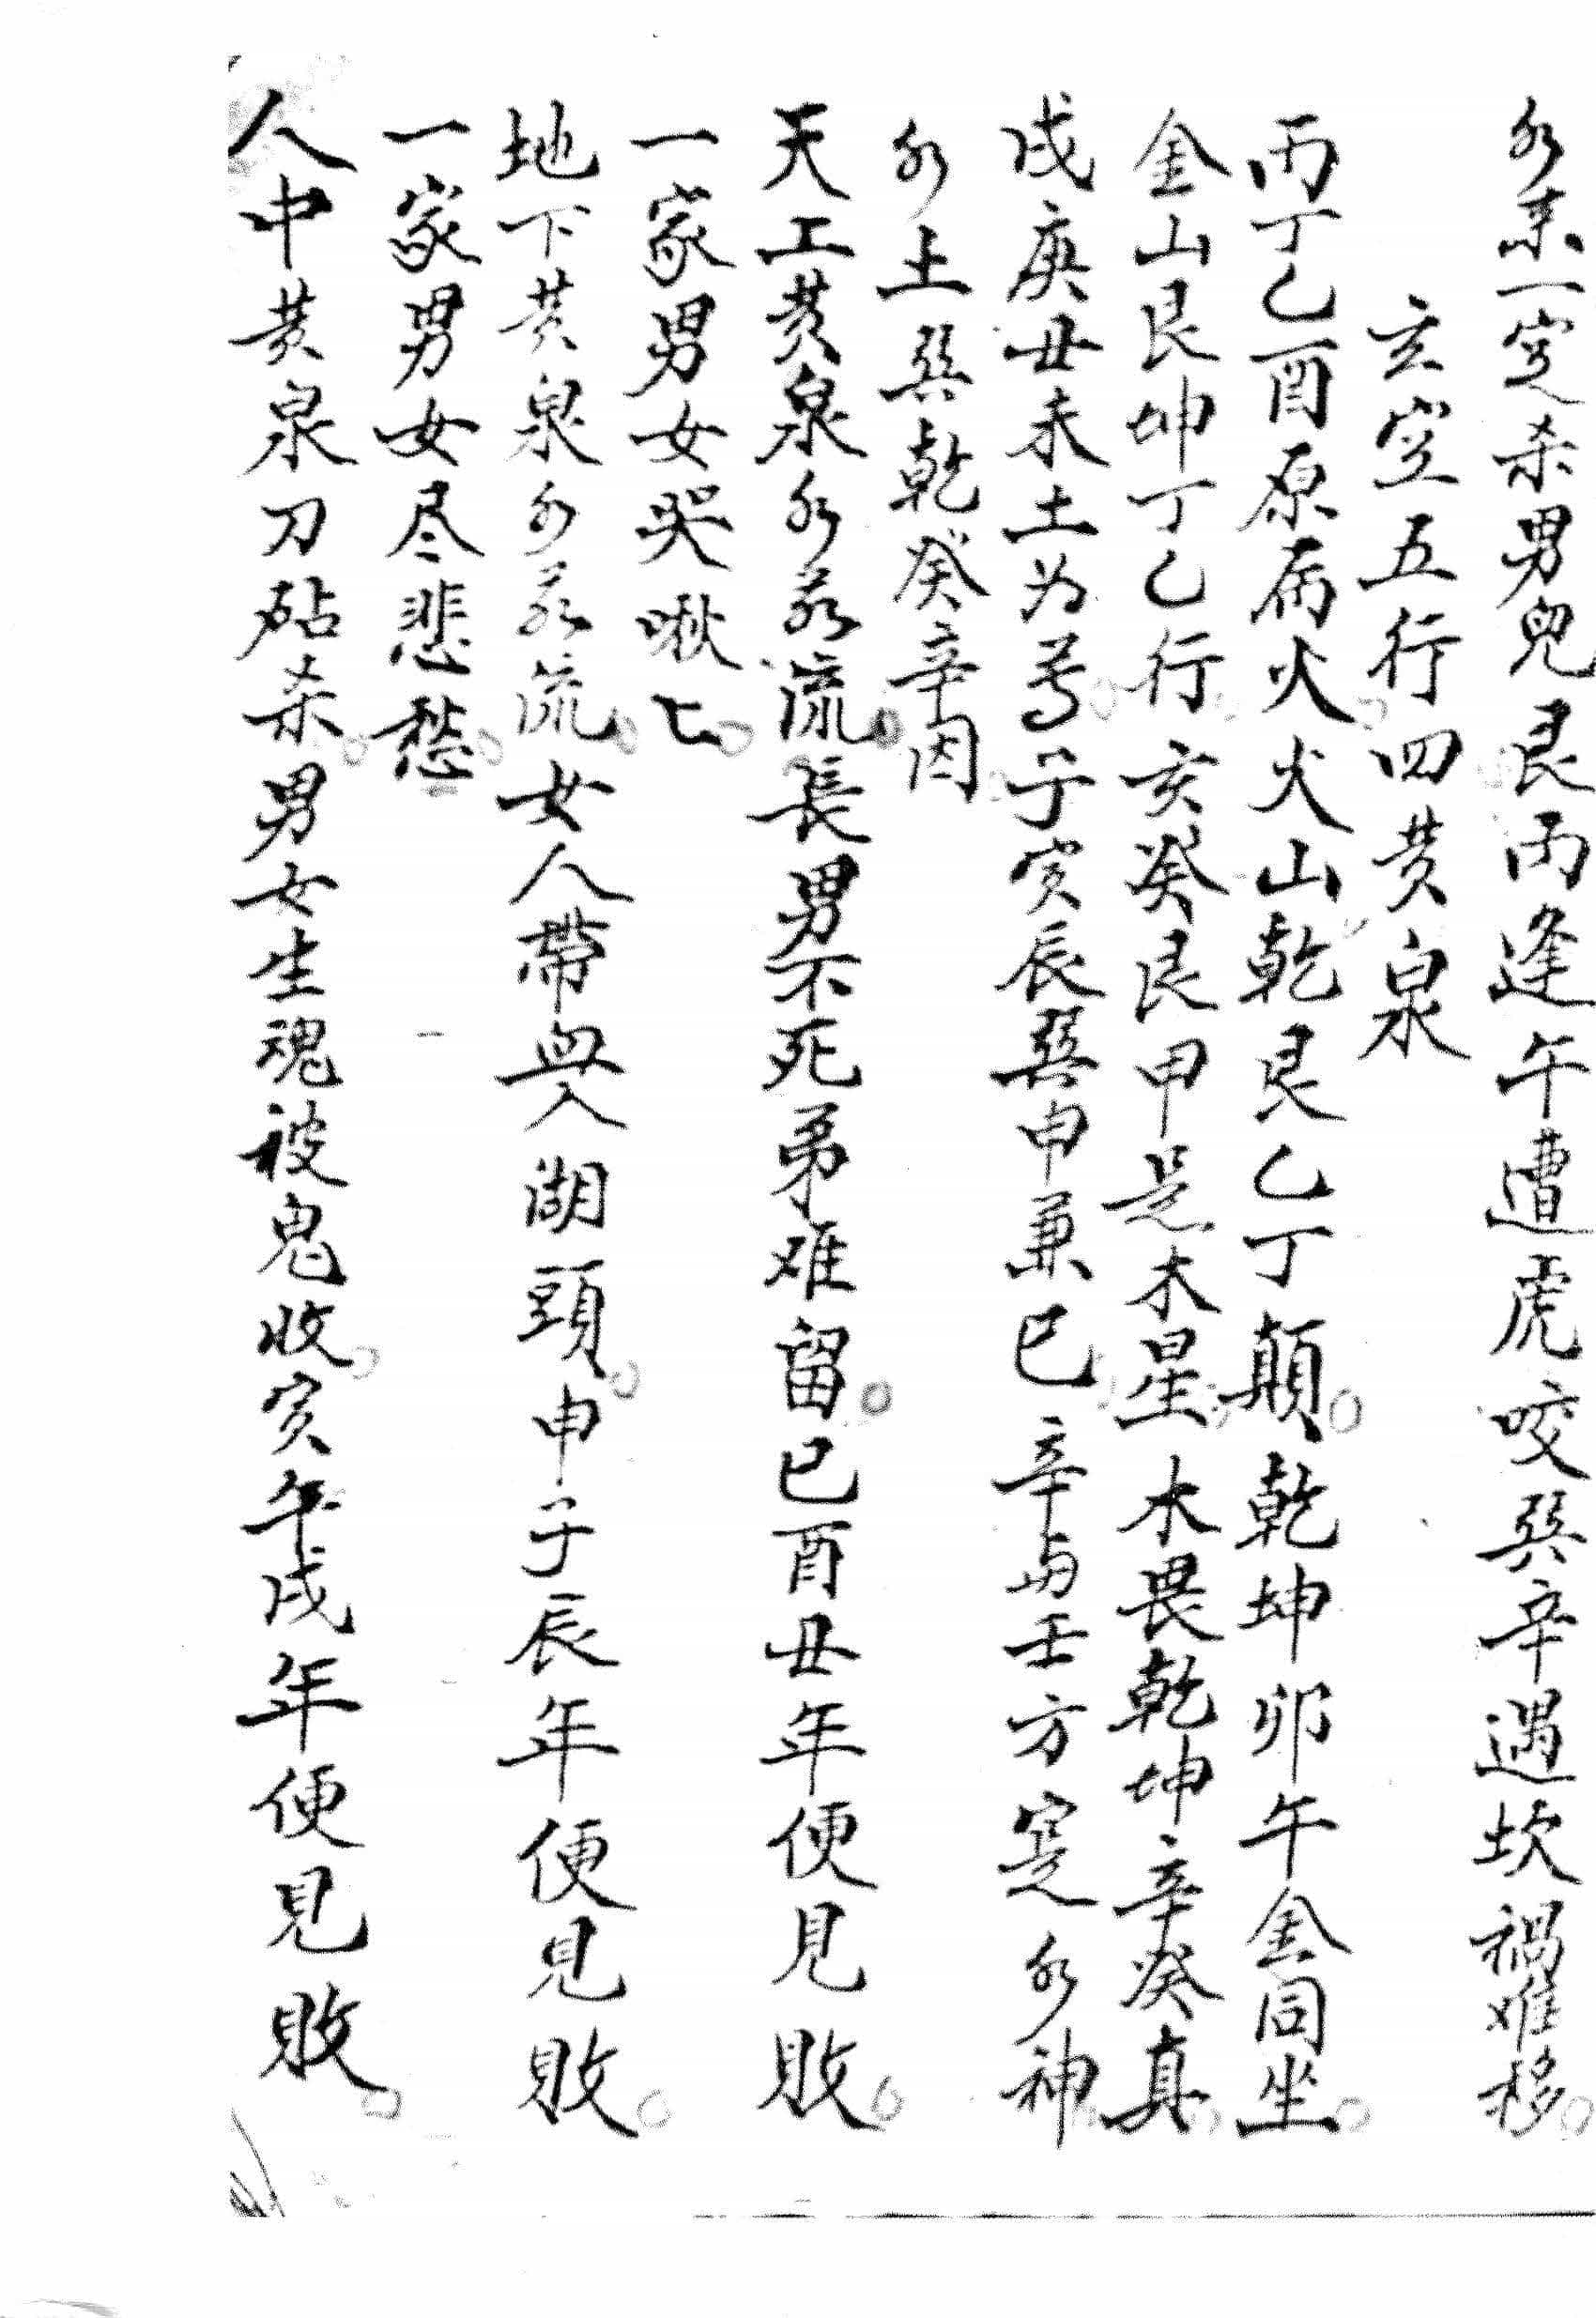 水来一定杀男兒艮丙逢午遭虎咬巽辛遇坎禍难移
玄空五行四黄泉
丙丁乙酉原属火火山乾艮乙丁顛乾坤卯午金同坐
金山艮坤丁乙行亥癸艮甲是木星木畏乾坤辛癸真
戌庚丑未土为尊子寅辰巽申兼巳辛与壬方寔水神
水土巽乾癸辛因
天工黄泉水若流長男不死弟难留巳酉丑年便見敗
一家男女哭啾〻
地下黄泉水若流女人帶血入湖頭申子辰年便見敗
一家男女尽悲愁
人中黄泉刀砧杀男女生魂被鬼收寅午戌年便見敗